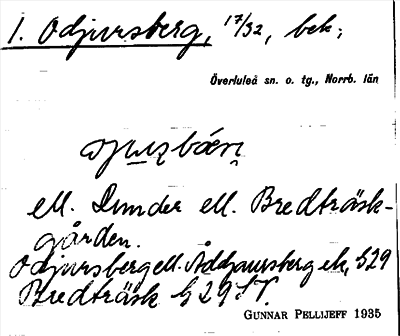 1. Odjursberg, 17/32, bek;
Överluleå sn. o. tg., Norrb. län
ell. Linder ell. Bredträsk-
gården.
Odjursberg ell. Åddjaursberg ek, 529
Bredträsk § 29 ST.
GUNNAR PELLIJEFF 1935